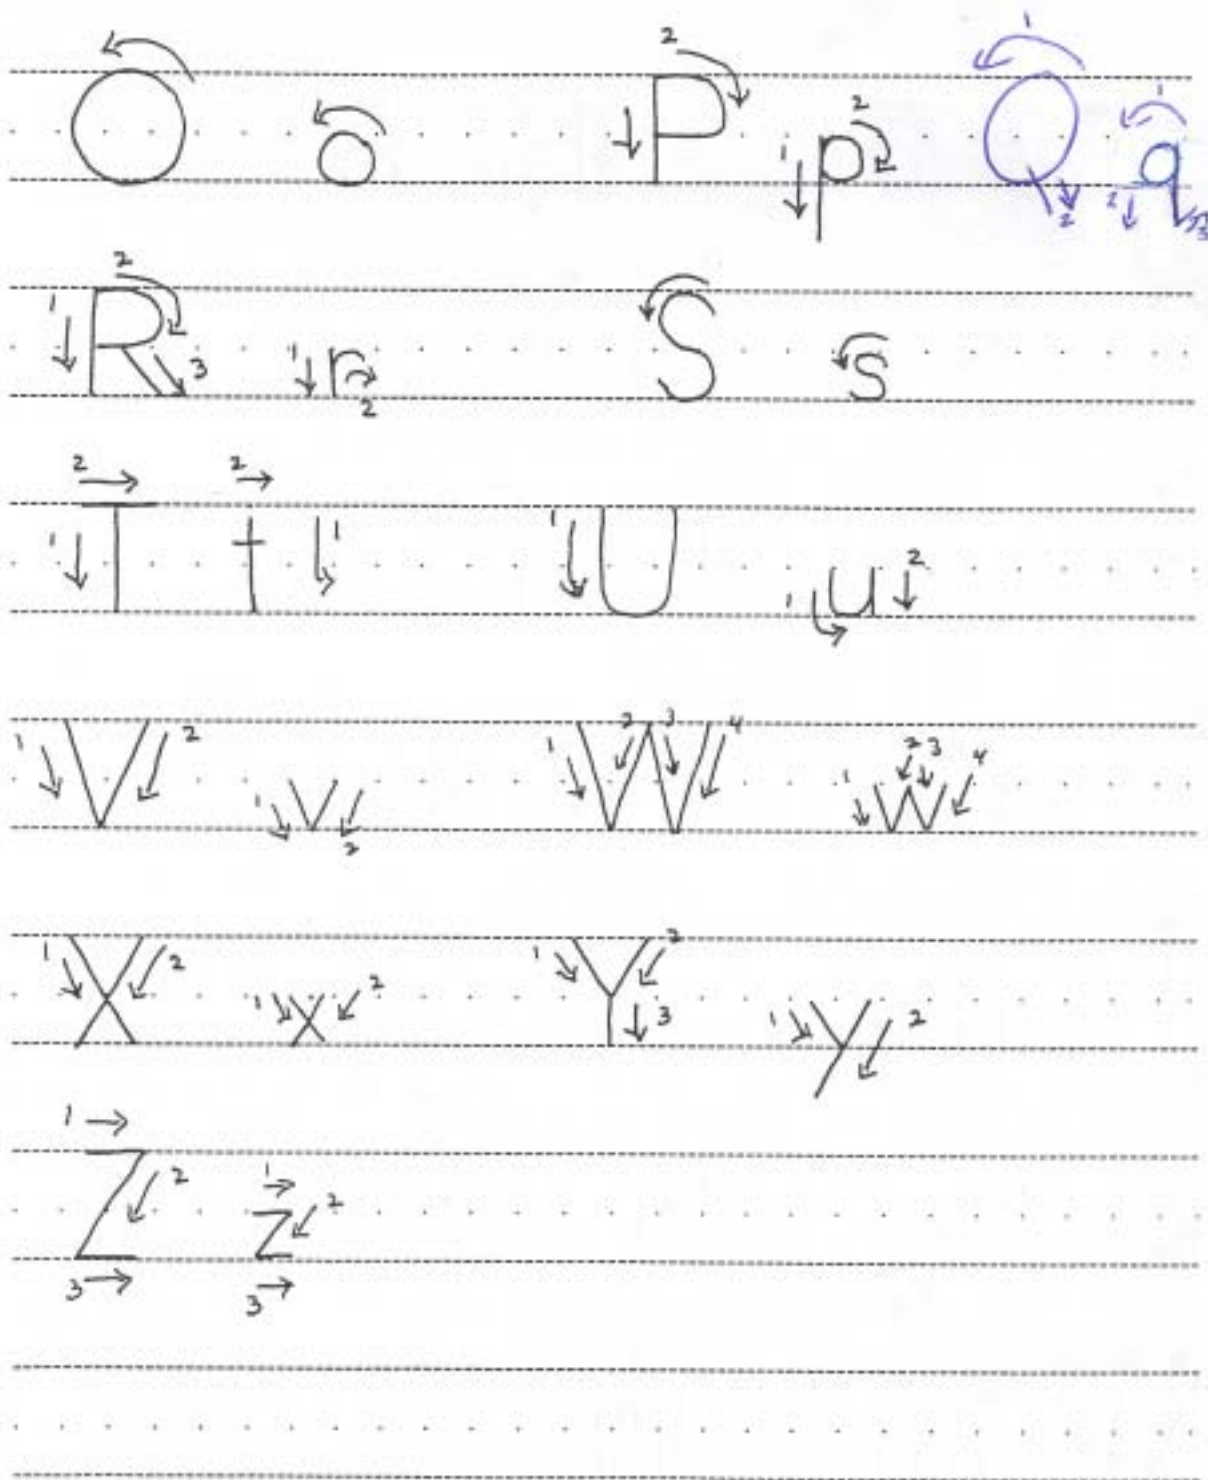 O o P p Q q
R r S s
T t U u
V v W w
X x Y y
Z z